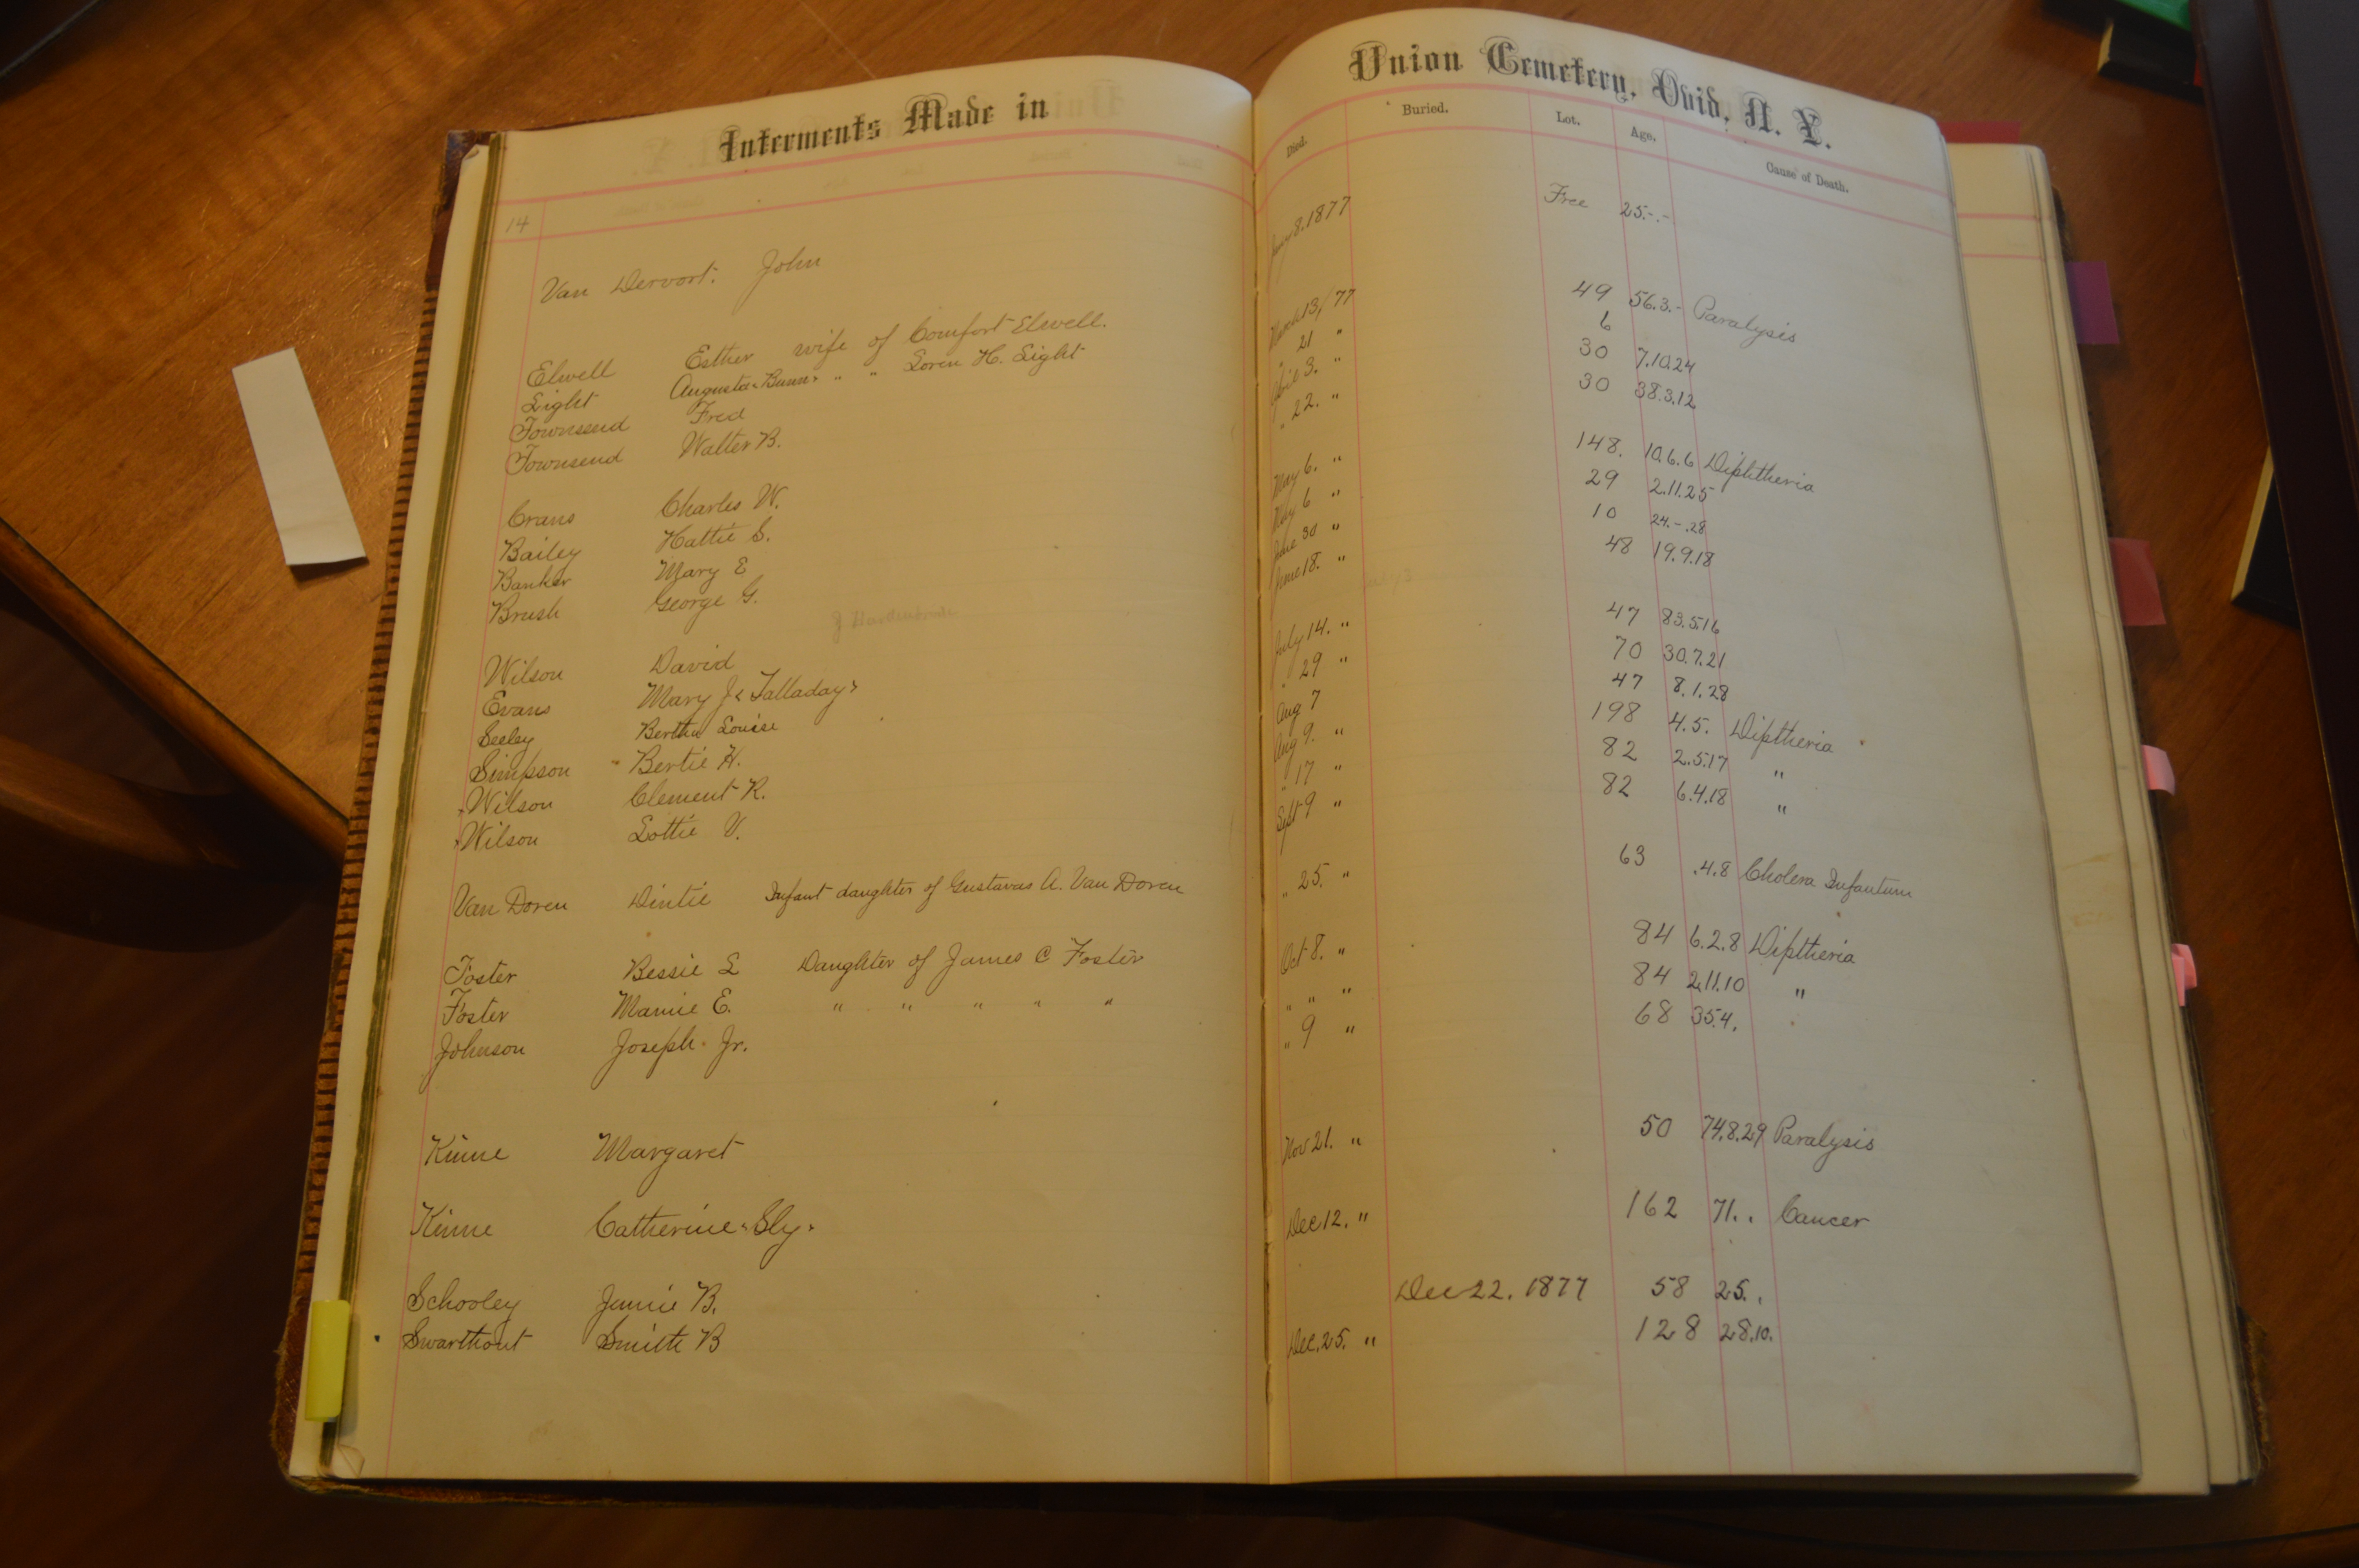 Interments Made in Union Cemetery, Ovid, N. Y.
Died. Buried. Lot. Age. Cause of Death.
14
Van Dervort. John 8. 1877 Free 25.-.-
Elwell Esther wife of Comfort Elwell. March 13/77 49 56.3.- Paralysis
Light Augusta <Bunn> " " Loren H. Light " 21 " 6
Townsend Fred April 3. " 30 7.10.24
Townsend Walter B. " 22. " 30 38.3.12
Crans Charles W. May 6. " 148. 10.6.6 Diphtheria
Bailey Hattie S. May 6 " 29 2.11.25
Banker Mary E June 30 " 10 24.-.28
Brush George G. June 18. " 48 19.9.18
Wilson David July 14. " 47 83.5.16
Evans Mary J. <Talladay> " 29 " 70 30.7.21
Seeley Bertha Louise Aug 7 47 8.1.28
Simpson Bertie H. Aug 9. " 198 4.5. Diptheria
Wilson Clement R. " 17 " 82 2.5.17 "
Wilson Lottie V. Sept 9 " 82 6.4.18 "
Van Doren Dintie Infant daughter of Gustavas A. Van Doren " 25. " 63 .4.8 Cholera Infantum
Foster Bessie L Daughter of James C Foster Oct 8. " 84 6.2.8 Diptheria
Foster Mamie E. " " " " " " " " 84 2.11.10 "
Johnson Joseph Jr. " 9 " 68 35.4.
Kinne Margaret Nov 21. " 50 74.8.29 Paralysis
Kinne Catherine <Sly> Dec 12. " 162 71. . Cancer
Schooley Jennie B. Dec 22. 1877 58 25. .
Swarthout Smith B Dec. 25. " 128 28.10.